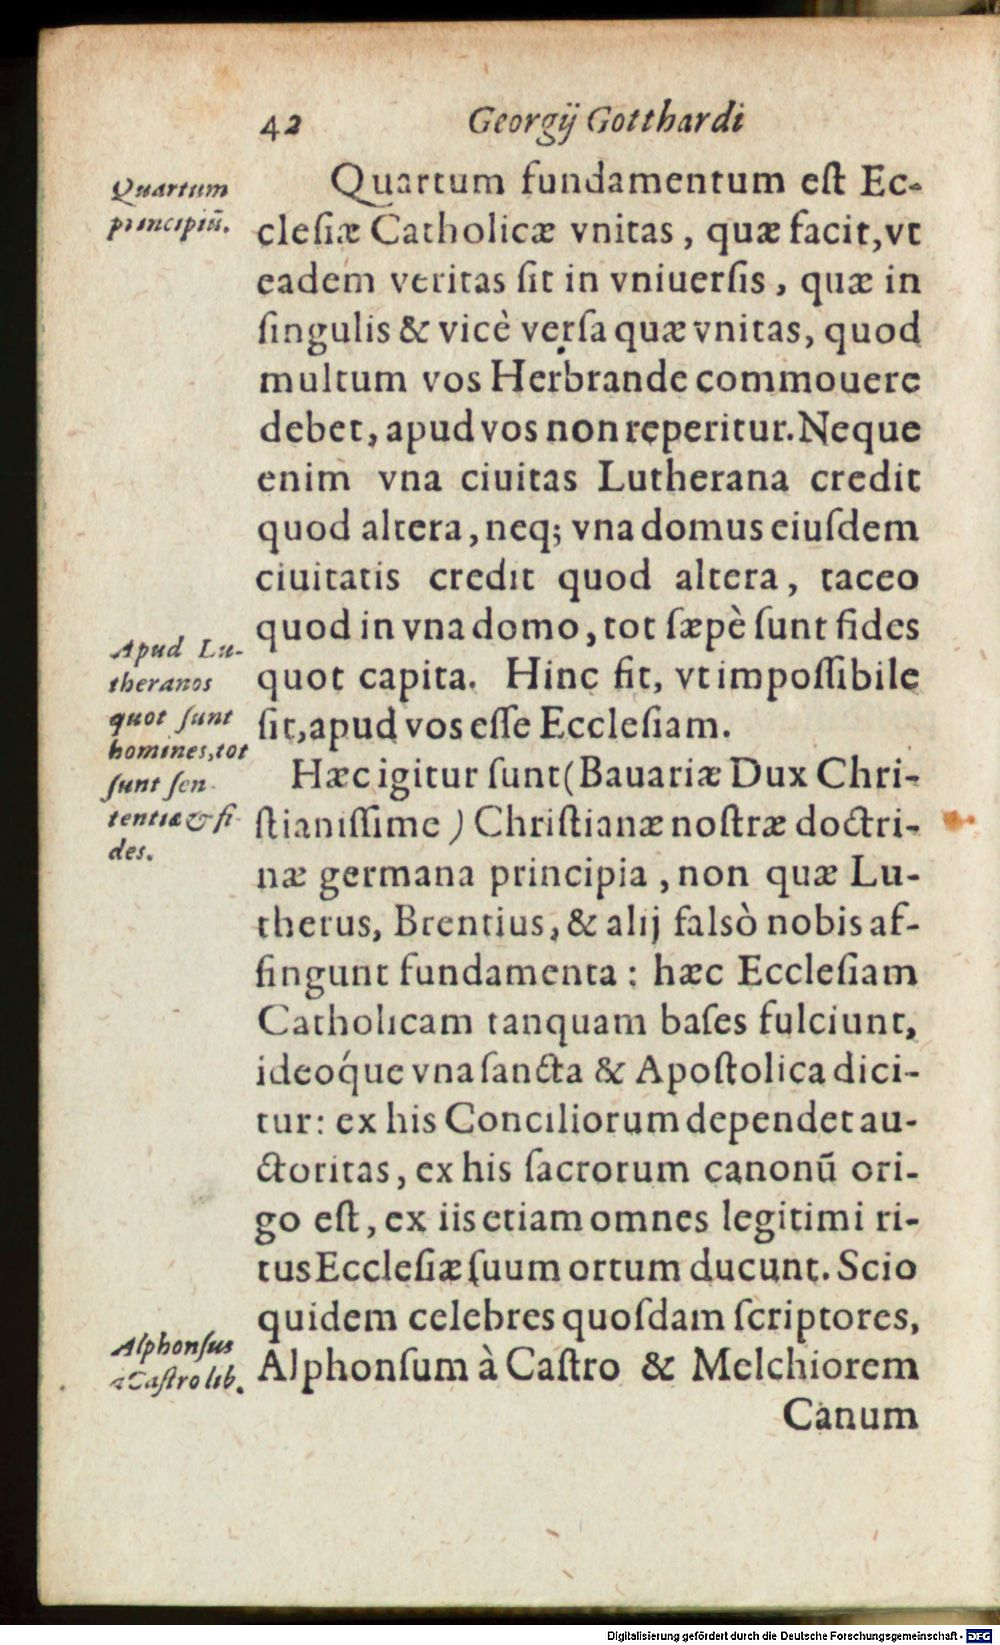 42 Georgij Gotthardi
Quartum
principiū.
Quartum fundamentum eſt Ec-
cleſiæ Catholicæ vnitas, quæ facit, vt
eadem veritas ſit in vniuerſis, quæ in
ſingulis & vicè verſa quæ vnitas, quod
multum vos Herbrande commouere
debet, apud vos non reperitur. Neque
enim vna ciuitas Lutherana credit
quod altera, neq; vna domus eiuſdem
ciuitatis credit quod altera, taceo
quod in vna domo, tot ſæpè ſunt fides
quot capita. Hinc fit, vt impoſſibile
ſit, apud vos eſſe Eccleſiam.
Apud Lu-
theranos
quot ſunt
homines, tot
ſunt ſen-
tentiæ & fi-
des.
Hæc igitur ſunt (Bauariæ Dux Chri-
ſtianiſſime) Chriſtianæ noſtræ doctri-
næ germana principia, non quæ Lu-
therus, Brentius, & alij falsò nobis af-
fingunt fundamenta: hæc Eccleſiam
Catholicam tanquam baſes fulciunt,
ideoq́ue vna ſancta & Apoſtolica dici-
tur: ex his Conciliorum dependet au-
ctoritas, ex his ſacrorum canonū ori-
go eſt, ex iis etiam omnes legitimi ri-
tus Eccleſiæ ſuum ortum ducunt. Scio
quidem celebres quoſdam ſcriptores,
Alphonſum à Caſtro & Melchiorem
Alphonſus
à Caſtro lib.
Canum
Digitalisierung gefördert durch die Deutsche Forschungsgemeinschaft - DFG